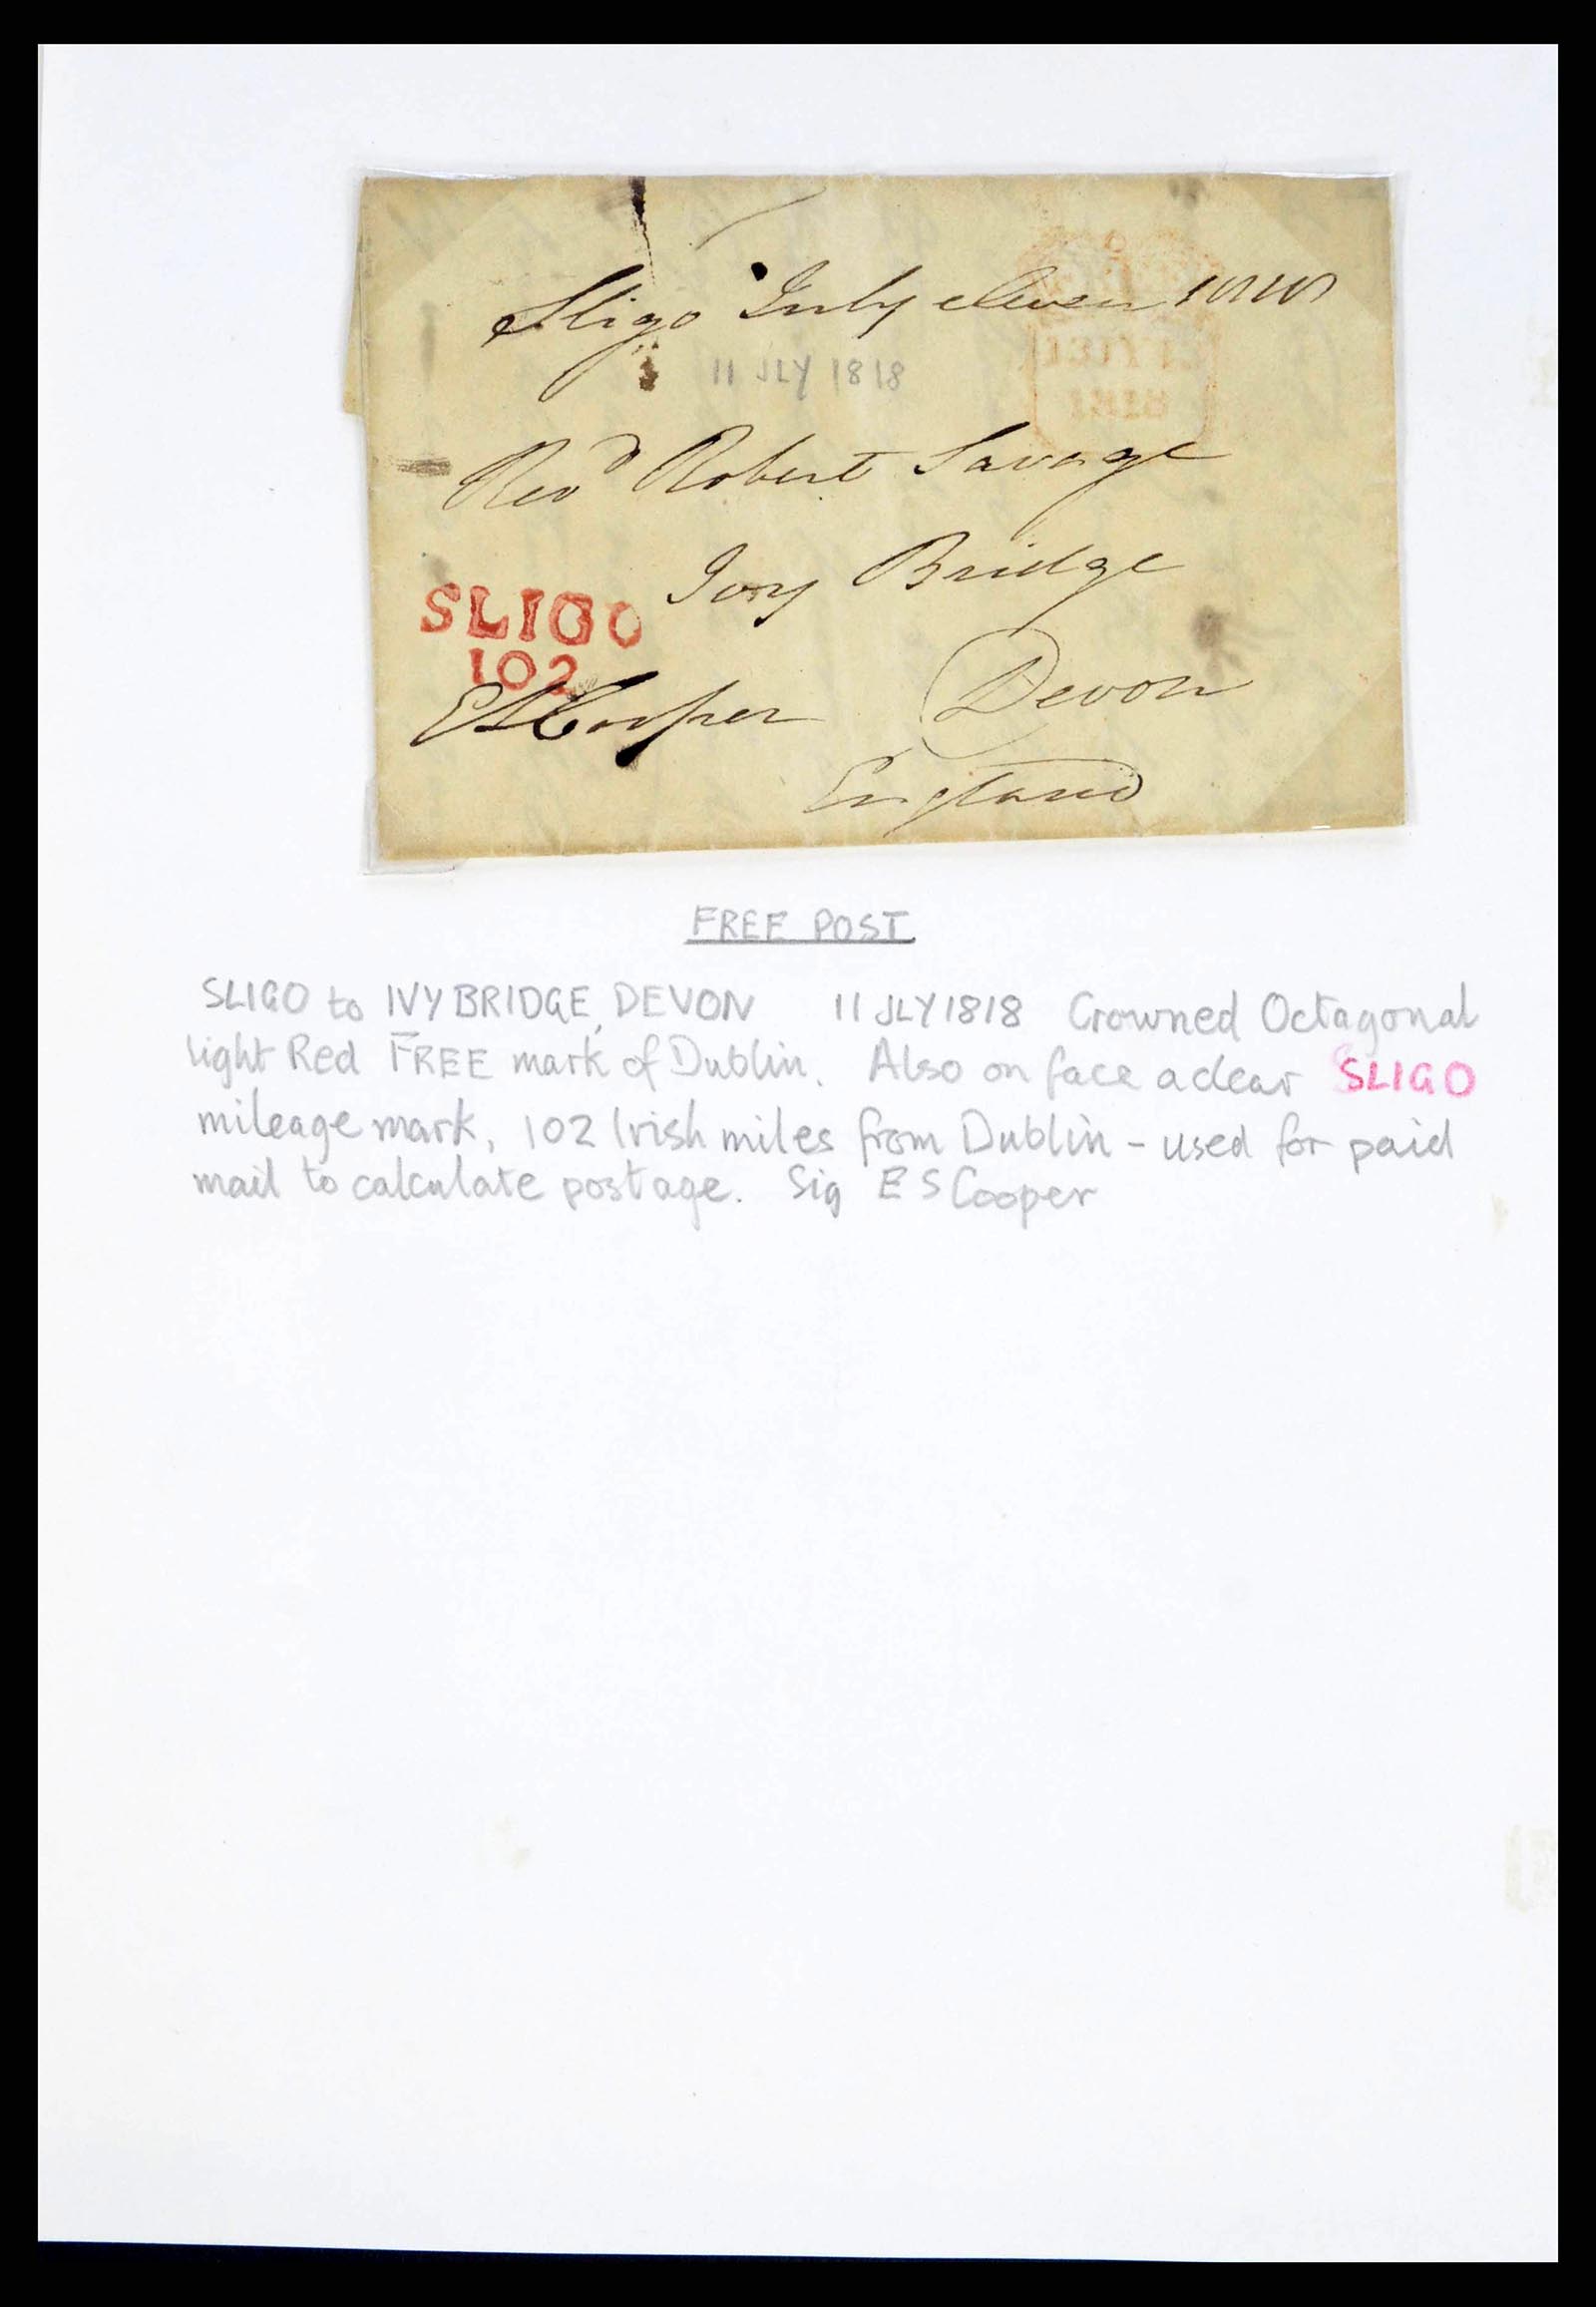 Sligo July eleven 1818
11 JLY 1818
Revd Robert Savage
Ivy Bridge
SLIGO
102
Devon
E S Cooper
England
FREE POST
SLIGO to IVYBRIDGE, DEVON 11 JLY 1818 Crowned Octagonal
light Red FREE mark of Dublin. Also on face a clear SLIGO
mileage mark, 102 Irish miles from Dublin - used for paid
mail to calculate postage. Sig E S Cooper